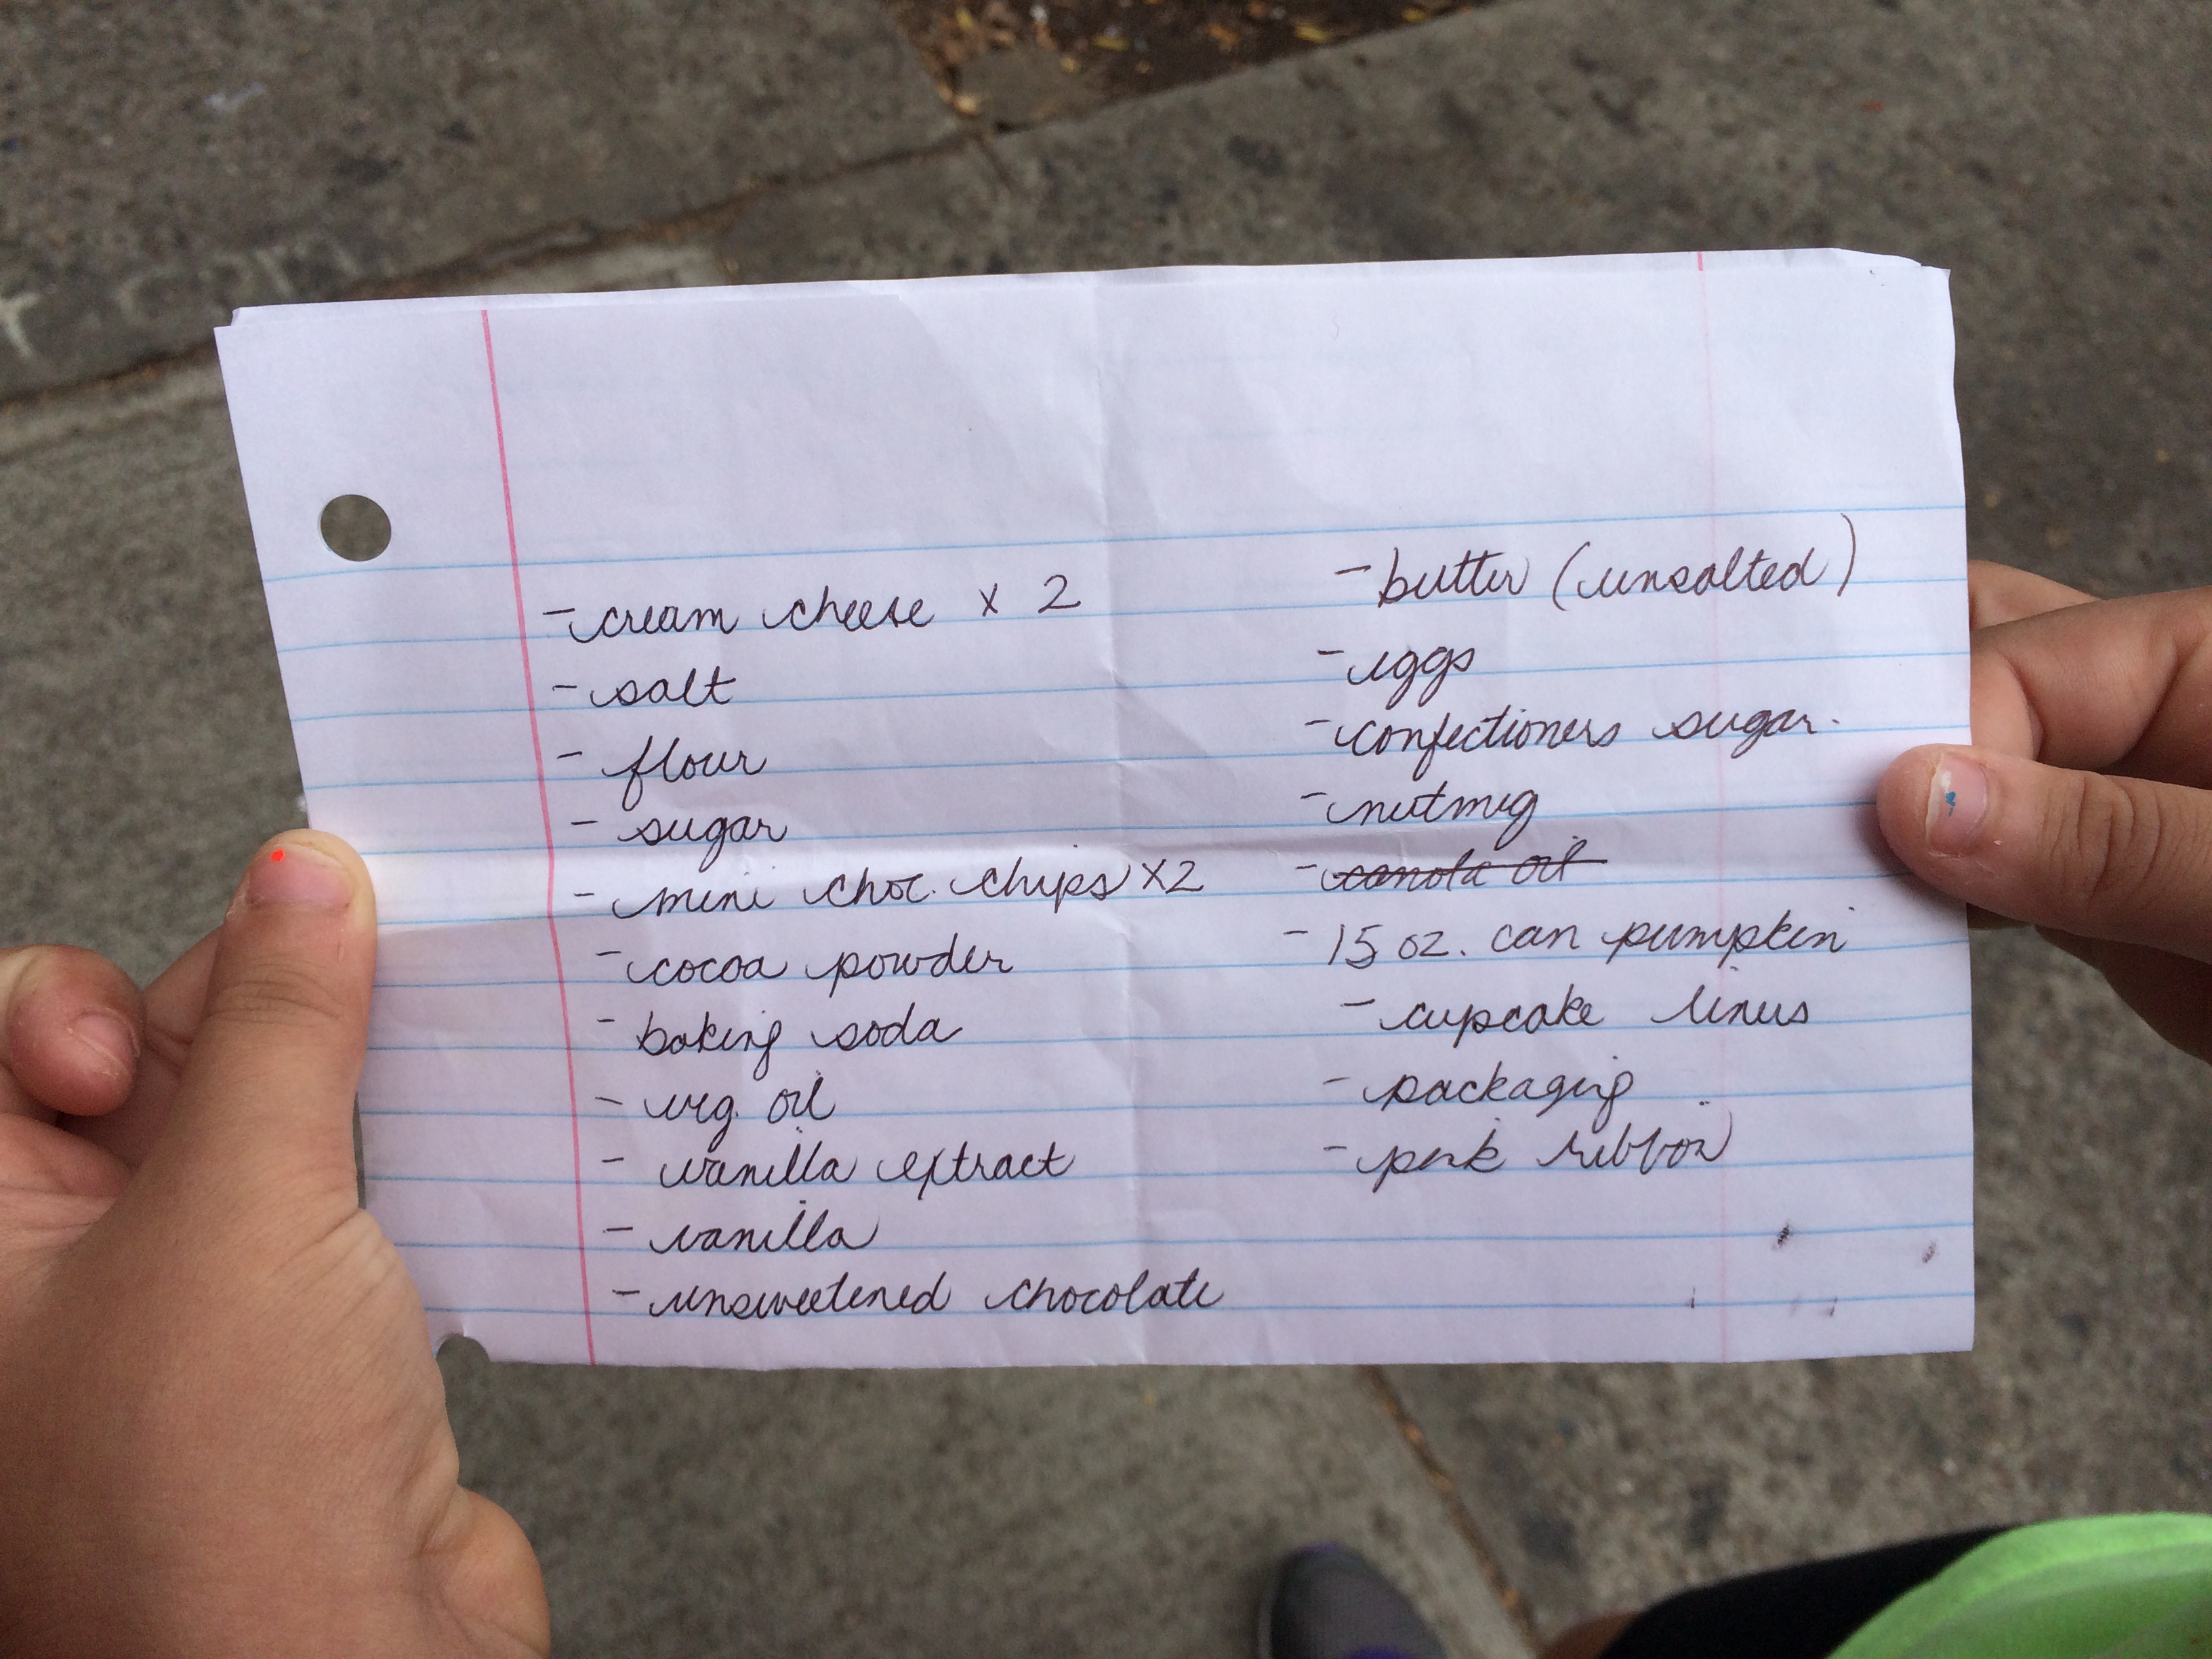 - cream cheese x 2
- salt
- flour
- sugar
- mini choc. chips x2
- cocoa powder
- baking soda
- veg. oil
- vanilla extract
- vanilla
- unsweetened chocolate
- butter (unsalted)
- eggs
- confectioners sugar.
- nutmeg
- canola oil
- 15 oz. can pumpkin
- cupcake liners
- packaging
- pink ribbon